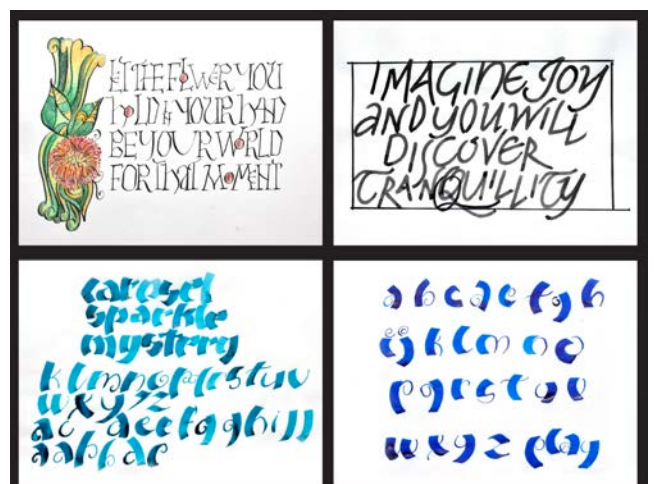 LET THE FLOWER YOU
HOLD IN YOUR HAND
BE YOUR WORLD
FOR THAT MOMENT
IMAGINE JOY
AND YOU WILL
DISCOVER
TRANQUILLITY
sparkle
mystery
k l m n o p q r s t u v
w x y z
a b c d e f g h
ij k l m n o
p q r s t u v
w x y z play